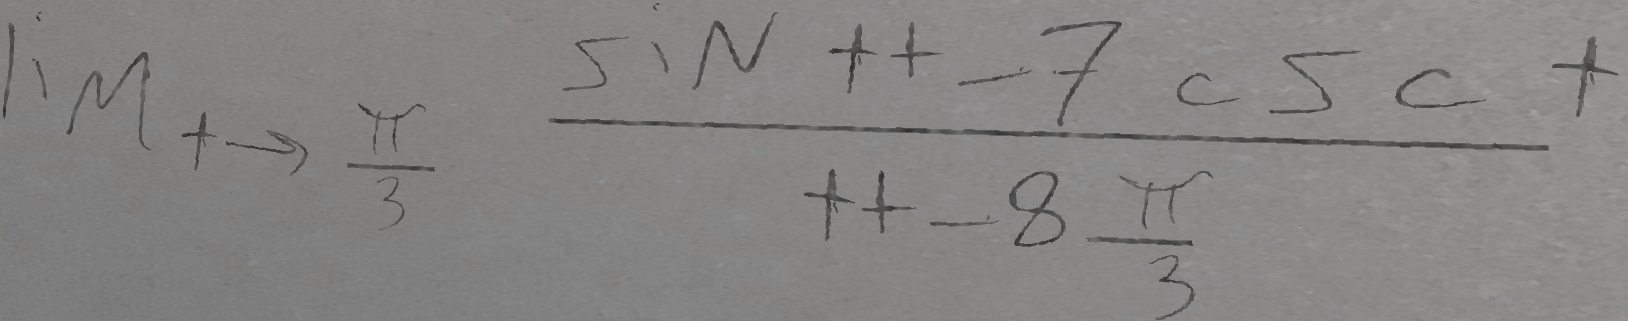 lim t→π/3 (sin t+-7 csc t)/(t+-8 π/3)